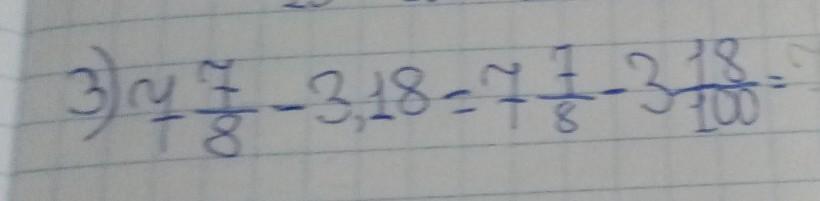 3) 7 7/8 - 3,18 = 7 7/8 - 3 18/100 =